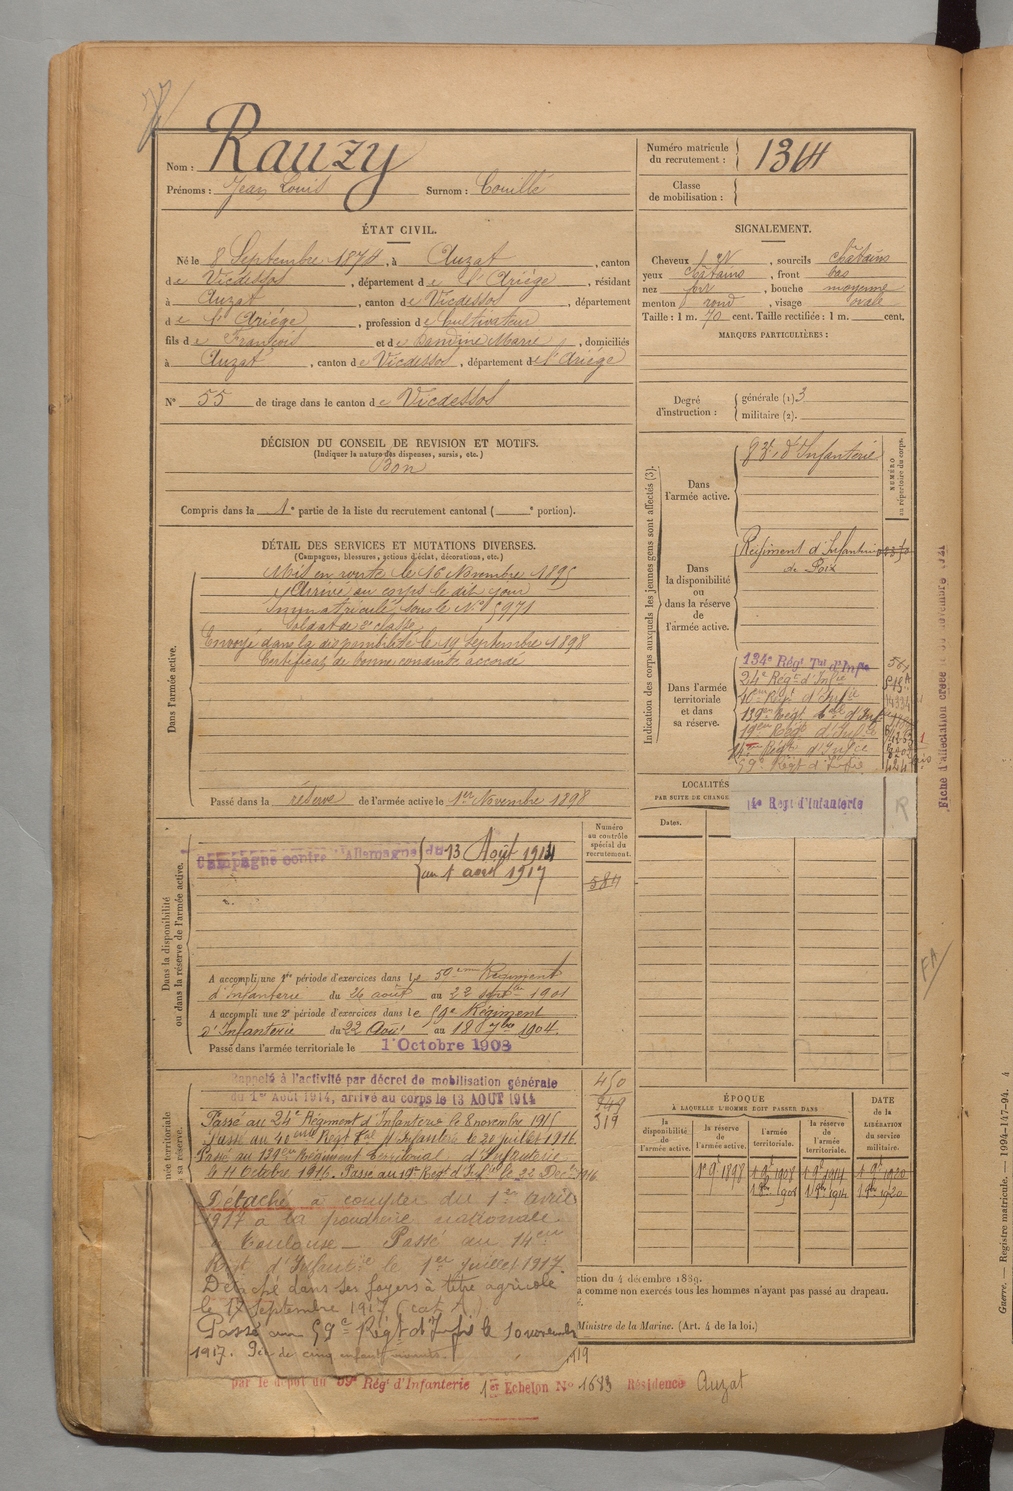 Rauzy
Nom :
Prénoms : Jean Louis Surnom : Couillé
Numéro matricule du recrutement : 1364
Classe de mobilisation :
ÉTAT CIVIL.
Né le 8 Septembre 1874, à Auzat, canton
de Vicdessos, département de l'Ariège, résidant
à Auzat, canton de Vicdessos, département
de l'Ariège, profession de Cultivateur
fils de François et de Marie, domiciliés
à Auzat, canton de Vicdessos, département de l'Ariège
N° 55 de tirage dans le canton de Vicdessos
SIGNALEMENT.
Cheveux, sourcils châtains
yeux châtains, front bas
nez fort, bouche moyenne
menton rond, visage ovale
Taille : 1 m. 70 cent. Taille rectifiée : 1 m. cent.
MARQUES PARTICULIÈRES :
Degré d'instruction : générale (1) 3
militaire (2).
DÉCISION DU CONSEIL DE REVISION ET MOTIFS.
(Indiquer la nature des dispenses, sursis, etc.)
Bon
Compris dans la 1e partie de la liste du recrutement cantonal ( e portion).
DÉTAIL DES SERVICES ET MUTATIONS DIVERSES.
(Campagnes, blessures, actions d'éclat, décorations, etc.)
Dans l'armée active.
Mis en route le 16 Novembre 1895
Arrivé au corps le dit jour
Immatriculé sous le N° 5971
Soldat de 2e classe
Envoyé dans la disponibilité le 19 Septembre 1898
Certificat de bonne conduite accordé
Passé dans la réserve de l'armée active le 1er Novembre 1898
Indication des corps auxquels les jeunes gens sont affectés (3).
NUMÉRO au répertoire du corps.
Dans l'armée active.
d'Infanterie
Dans la disponibilité ou dans la réserve de l'armée active.
Régiment d'Infanterie
de Foix
Dans l'armée territoriale et dans sa réserve.
134e Régt Tal d'Infie
24e Régt d'Infie
Régt d'Infie
139e Régt d'Inf
19e Régt d'Infie
14e Régt d'Infie
59e Régt d'Infie
14e Régt d'Infanterie
R
Fiche d'affectation créée le novembre 1921
LOCALITÉS
PAR SUITE DE CHANGE
Dates.
Dans la disponibilité ou dans la réserve de l'armée active.
Numéro au contrôle spécial du recrutement.
584
Campagne contre l'Allemagne du 13 Août 1914
au 1 avril 1917
A accompli une 1re période d'exercices dans le 59eme Régiment
d'Infanterie du 26 août au 22 sept 1901
A accompli une 2e période d'exercices dans le 59e Régiment
d'Infanterie du 22 Août au 18 7bre 1904.
Passé dans l'armée territoriale le 1 Octobre 1908
Rappelé à l'activité par décret de mobilisation générale
du 1er Août 1914, arrivé au corps le 13 AOUT 1914
450
949
319
Passé au 24e Régiment d'Infanterie le 8 novembre 1915
Passé au 40eme Régt Tal d'Infanterie le 20 juillet 1916
Passé au 139e Régiment Territorial d'Infanterie
le 11 Octobre 1916. Passé au 19e Régt d'Infie le 22 Décbre 1916
Détaché à compter du 1er avril
1917 à la poudrerie nationale
Toulouse — Passé au 14eme
Régt d'Infanterie le 1er Juillet 1917.
Détaché dans ses foyers à titre agricole
le 17 Septembre 1917 (cat. A.)
Passé au 59e Régt d'Infie le 10 novembre
1917. Père de cinq enfants vivants.
ÉPOQUE
À LAQUELLE L'HOMME DOIT PASSER DANS
la disponibilité de l'armée active.
la réserve de l'armée active.
l'armée territoriale.
la réserve de l'armée territoriale.
DATE de la LIBÉRATION du service militaire.
1er 9bre 1898
1er 9bre 1908
1er 9bre 1914
1er 9bre 1920
1er 8bre 1908
1er 8bre 1914
1er 8bre 1920
FA
ction du 4 décembre 1889.
a comme non exercés tous les hommes n'ayant pas passé au drapeau.
Ministre de la Marine. (Art. 4 de la loi.)
par le dépôt du 59e Régt d'Infanterie 1er Echelon N° 1683 Résidence Auzat
Guerre. — Registre matricule. — 1994-147-94. 4